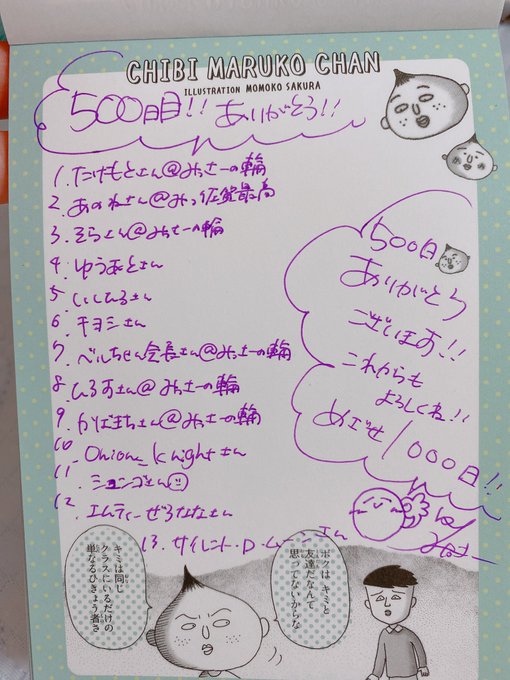 CHIBI MARUKO CHAN
ILLUSTRATION MOMOKO SAKURA
500日目!! ありがとう!!
1. たけもとさん@みっさーの輪
2. あのねさん@みっ佐賀最高
3. そらさん@みっさーの輪
4. ゆうまさん
5. しいひろさん
6. キヨミさん
7. ベルちゃん会長さん@みっさーの輪
8. ひろすさん@みっさーの輪
9. かばまちさん@みっさーの輪
10. Onion_knightさん
11. ションゴさん
12. エムティーぜろななさん
13. サイレント・D・ムーンさん
500日
ありがとう
ございます!!
これからも
よろしくね!!
めざせ1000日!!
ボクはキミと
友達だなんて
思ってないからな
キミは同じ
クラスにいるだけの
単なるひきょう者さ